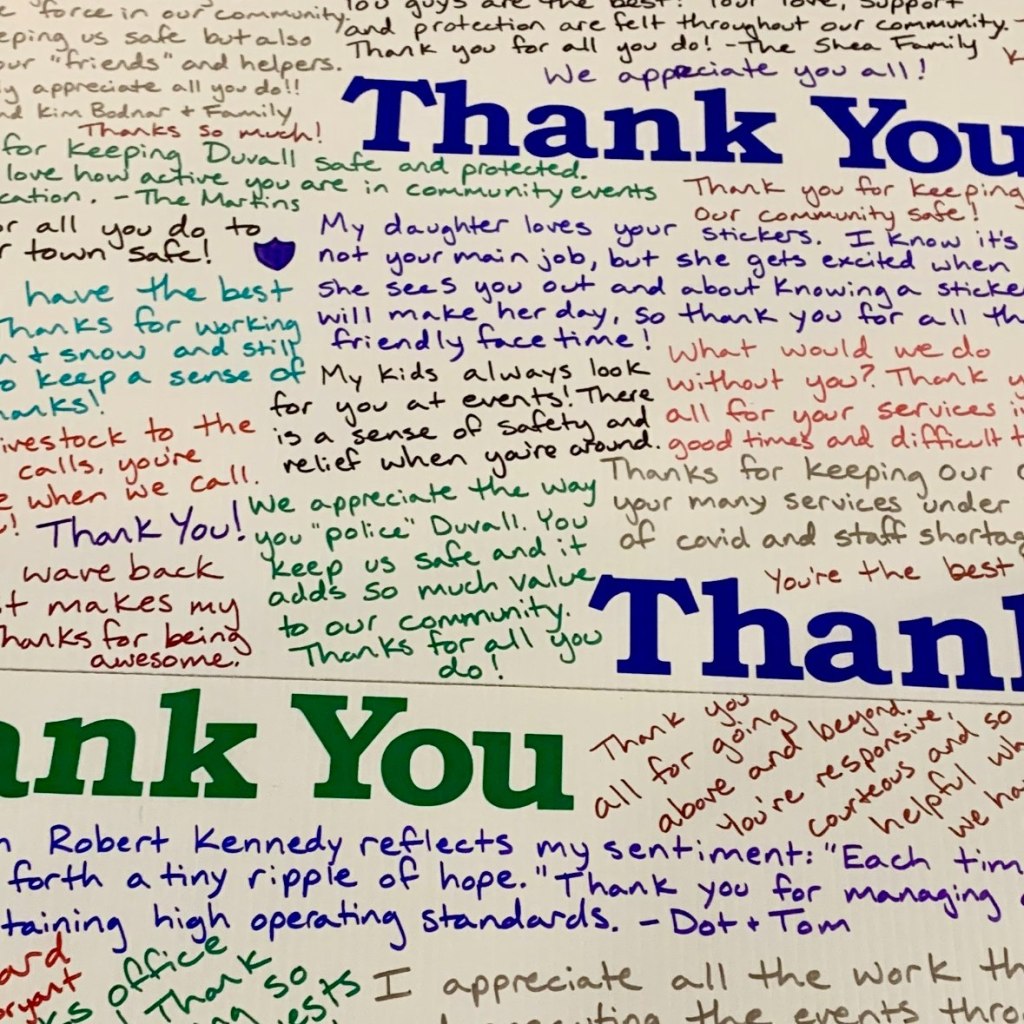 "force in our community.
eping us safe but also
our "friends" and helpers.
appreciate all you do!!
Kim Bodnar + Family
You guys are the best! Your love, support
and protection are felt throughout our community.
Thank you for all you do! - The Shea Family
We appreciate you all!
Thank You
Thanks so much!
for keeping Duvall safe and protected.
love how active you are in community events
cation. - The Martins
Thank you for keeping
our community safe!
or all you do to
r town safe!
My daughter loves your stickers. I know it's
not your main job, but she gets excited when
she sees you out and about knowing a sticke
will make her day, so thank you for all th
friendly face time!
have the best
Thanks for working
n + snow and still
o keep a sense of
hanks!
My kids always look
for you at events! There
is a sense of safety and
relief when you're around.
What would we do
without you? Thank y
all for your services i
good times and difficult t
ivestock to the
calls, you're
e when we call.
Thank You!
We appreciate the way
you "police" Duvall. You
keep us safe and it
adds so much value
to our community.
Thanks for all you
do!
Thanks for keeping our
your many services under
of covid and staff shortag
You're the best
wave back
t makes my
hanks for being
awesome.
Thank
ank You
Thank you
all for going
above and beyond.
You're responsive,
courteous and so
helpful wh
we ha
n Robert Kennedy reflects my sentiment: "Each tim
forth a tiny ripple of hope." Thank you for managing
taining high operating standards. - Dot + Tom
ard
bryant
ks office
Thank
ng so
ests
I appreciate all the work th
the events thro